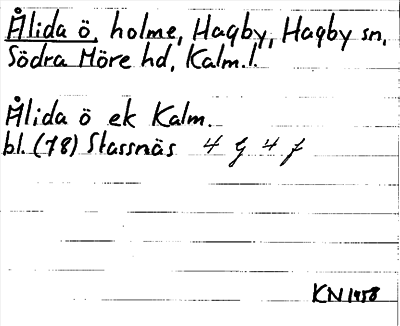 Ålida ö, holme, Hagby, Hagby sn,
Södra Möre hd, Kalm.l.
Ålida ö ek Kalm.
bl. (78) Stassnäs 4 g 4 f
KN 1958